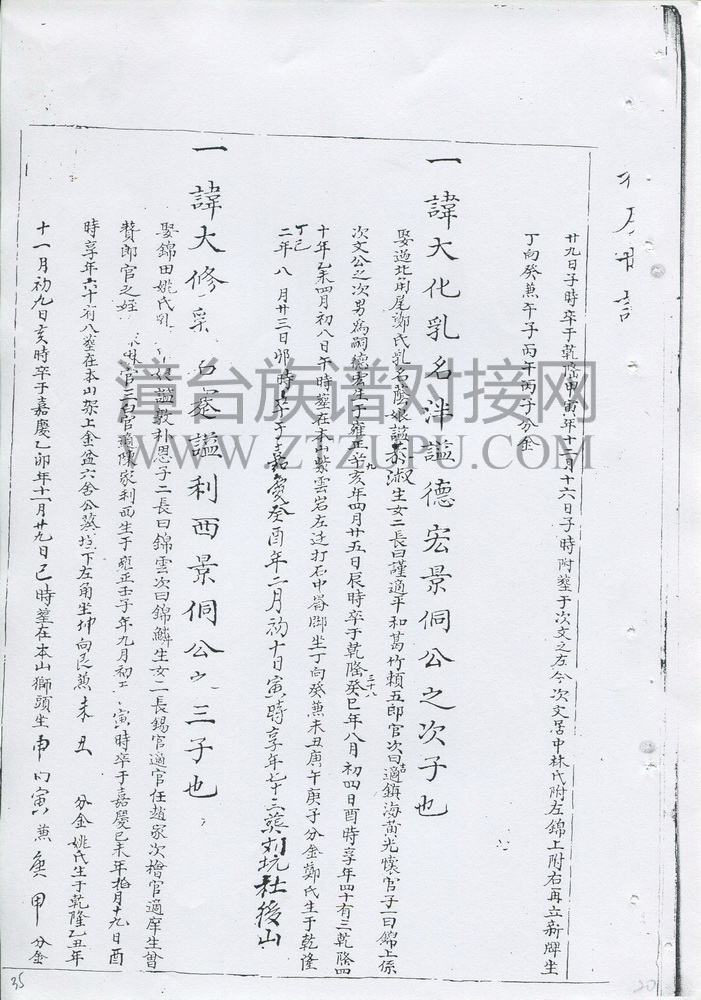 廿九日子時卒于乾隆甲寅年十二月十六日子時附塟于次文之左今次文居中林氏附左錦上附右再立新牌坐
丁向癸兼午子丙午丙子分金
一諱大化乳名泮謚德宏景侗公之次子也
娶過北甪尾鄭氏乳名蔭娘謚恭淑生女二長曰謹適平和葛竹賴五郎官次曰適鎮海黃光懷官子一曰錦上係
次文公之次男為嗣德宏生于雍正辛亥年四月廿五日辰時卒于乾隆癸巳年八月初四日酉時享年四十有三乾隆四
九
三十八
十年乙未四月初八日午時塟在本山紫雲岩左边打石中崙脚坐丁向癸兼未丑庚午庚子分金鄭氏生于乾隆
丁巳
二年八月廿三日卯時卒于嘉慶癸酉年二月初十日寅時享年七十三塟坑杜後山
一諱大修謚利西景侗公之三子也
娶錦田姚氏乳謚敦朴恩子二長曰錦雲次曰錦鱗生女二長錫官適官任趙家次檜官適庠生曾
贊郎官之姪官三自官適陳家利西生于雍正壬子年九月初寅時卒于嘉慶己未年拾月十九日酉
時享年六十有八塟在本山架上金盆六舍公墓下左角坐坤向艮兼未丑分金姚氏生于乾隆乙丑年
十一月初九日亥時卒于嘉慶乙卯年十一月廿九日巳時塟在本山獅頭坐申向寅兼庚甲分金
漳台族谱对接网
WWW.ZTZUPU.COM
35
20